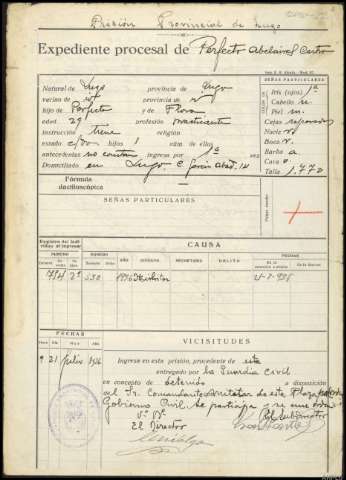 Prisión Provincial de Lugo
Expediente procesal de Perfecto Abelairas Castro
Natural de Lugo provincia de Lugo
vecino de íd provincia de íd
hijo de Perfecto y de Flora
edad 29 profesión practicante
instrucción tiene religión
estado c/do hijos 1 edad de ellos
antecedentes no constan ingresa por 1ª
Domiciliado en Lugo C. García Abad 14
SEÑAS PARTICULARES
COLOR DE
Iris (ojos) 1ª
Cabello n.
Piel m.
Cejas separadas
Nariz r.
Boca r.
Barba a
Cara o
Talla 1.770
Fórmula
dactiloscópica
SEÑAS PARTICULARES
CAUSA
NÚMERO
NÚMERO
AÑO
JUZGADO
SECRETARÍA
DELITO
FECHAS
794 2º 530 1936 Militar 21-7-936
FECHAS
VICISITUDES
Día
Mes
Año
21 julio 1936 Ingresa en esta prisión, procedente de esta
entregado por la Guardia Civil
en concepto de detenido a disposición
del Sr. Comandante Militar de esta Plaza
Gobierno Civil. Se participa y se une orden
Vº Bº
El Director
El Subdirector